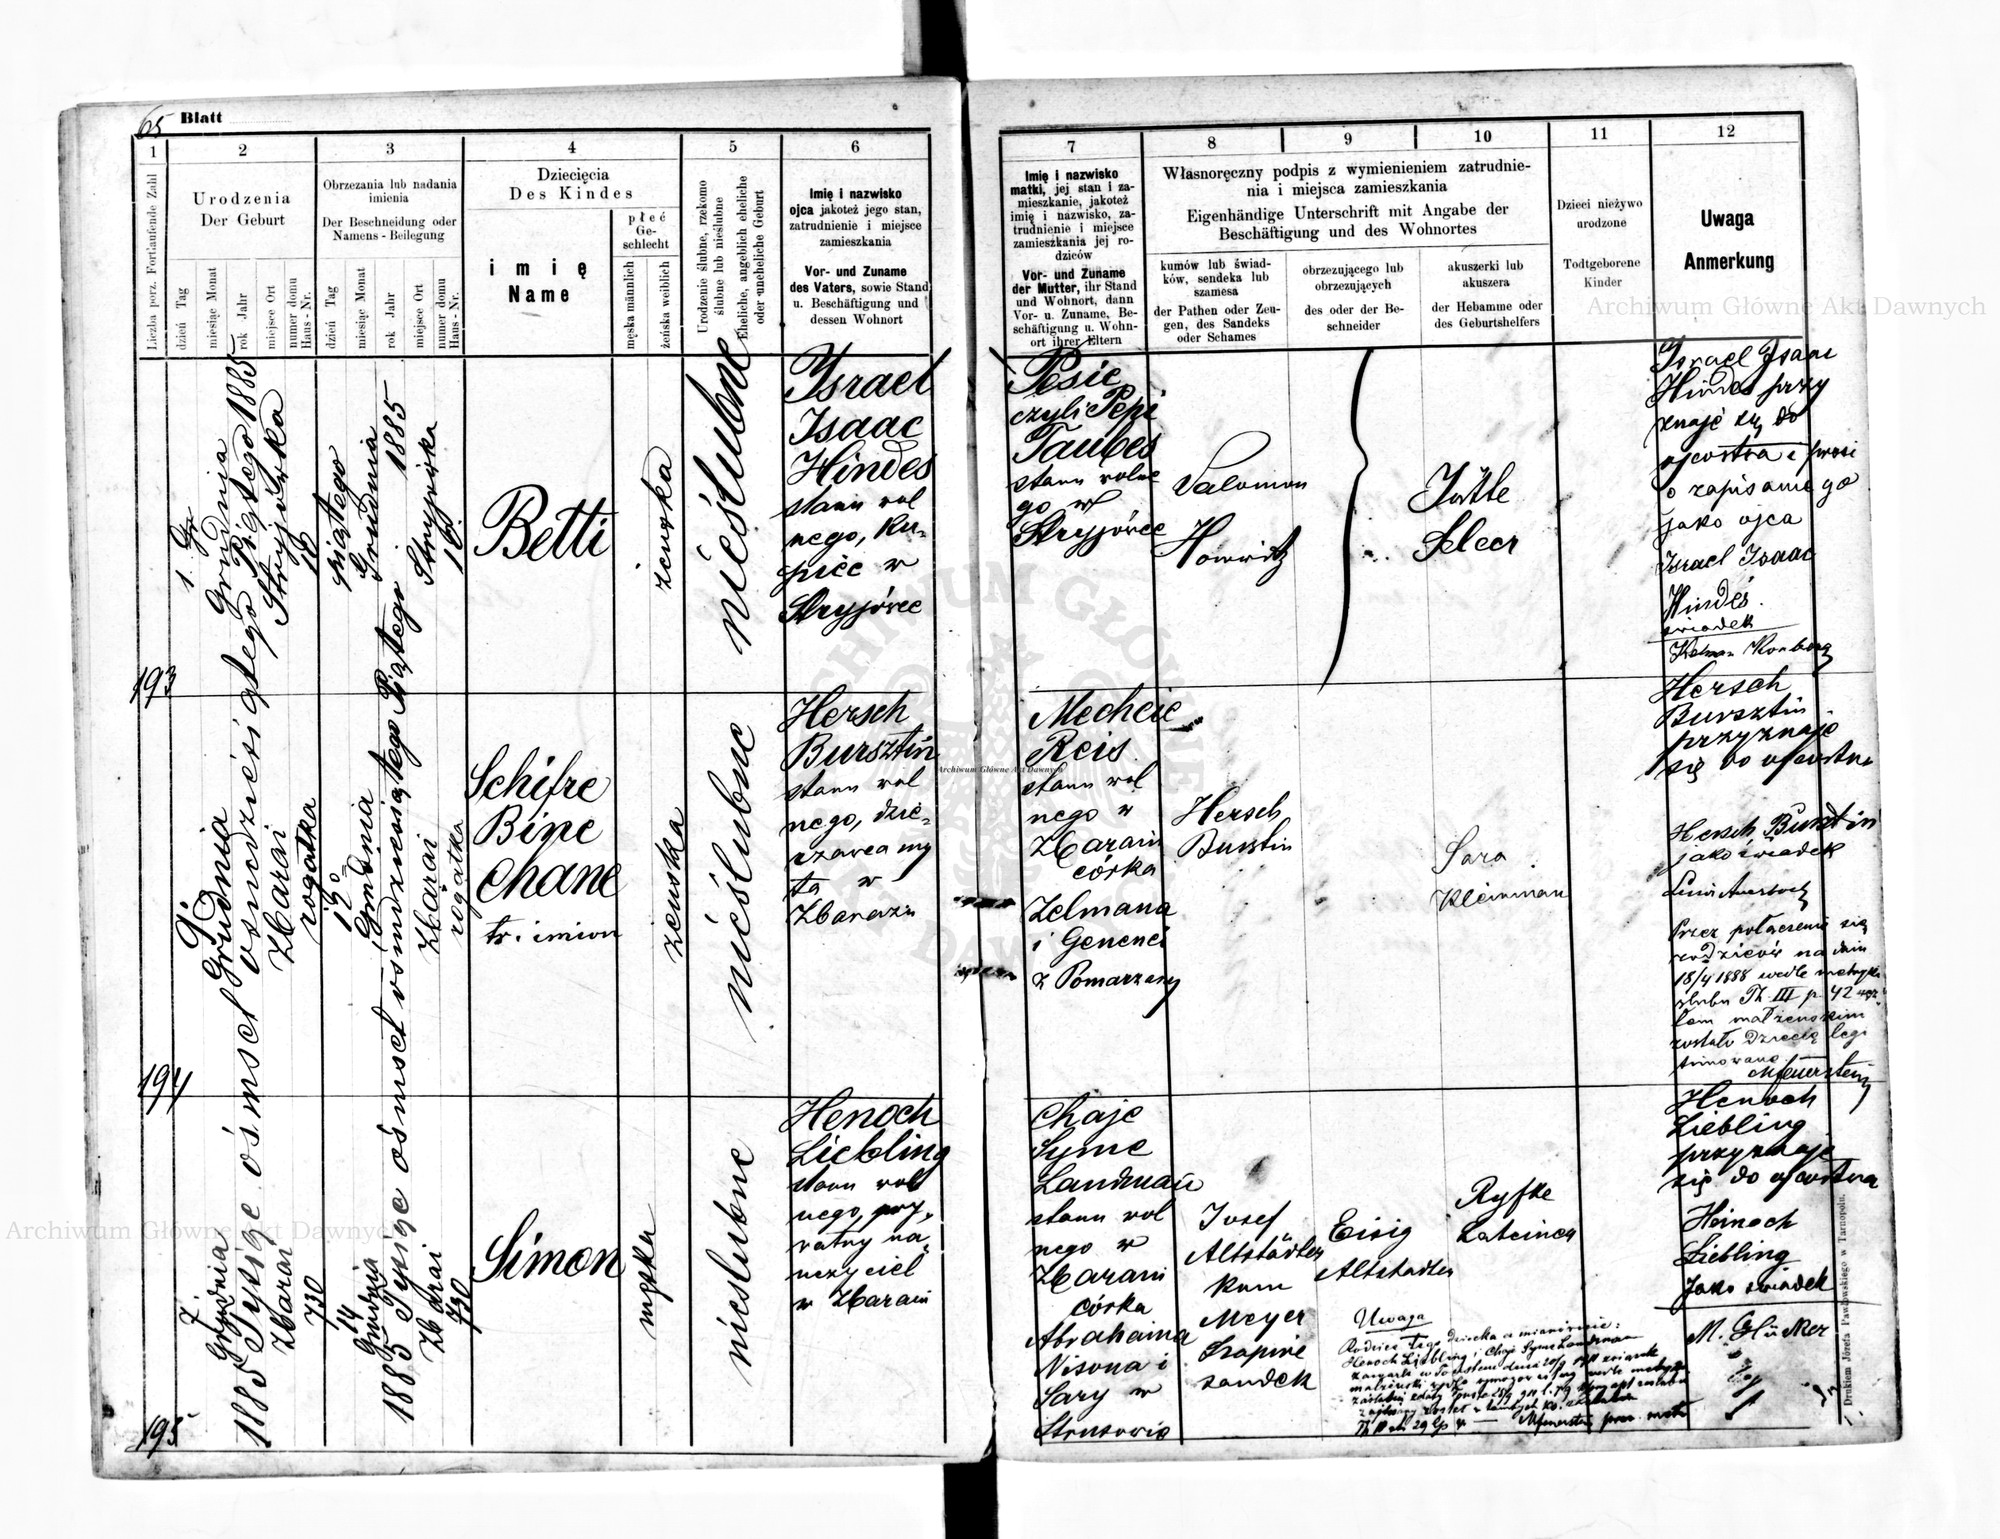 65 Blatt
1
2
3
4
5
6
Liczba porz. Fortlaufende Zahl
Urodzenia
Der Geburt
dzień Tag
miesiąc Monat
rok Jahr
miejsce Ort
numer domu
Haus - Nr.
Obrzezania lub nadania
imienia
Der Beschneidung oder
Namens - Beilegung
dzień Tag
miesiąc Monat
rok Jahr
miejsce Ort
numer domu
Haus - Nr.
Dziecięcia
Des Kindes
imię
Name
płeć
Ge-
schlecht
męska männlich
żeńska weiblich
Urodzenie ślubne, rzekomo
ślubne lub nieślubne
Eheliche, angeblich eheliche
oder uneheliche Geburt
Imię i nazwisko
ojca jakoteż jego stan,
zatrudnienie i miejsce
zamieszkania
Vor- und Zuname
des Vaters, sowie Stand
u. Beschäftigung und
dessen Wohnort
7
8
9
10
11
12
Imię i nazwisko
matki, jej stan i za-
mieszkanie, jakoteż
imię i nazwisko, za-
trudnienie i miejsce
zamieszkania jej ro-
dziców
Vor- und Zuname
der Mutter, ihr Stand
und Wohnort, dann
Vor- u. Zuname, Be-
schäftigung u. Wohn-
ort ihrer Eltern
Własnoręczny podpis z wymienieniem zatrudnie-
nia i miejsca zamieszkania
Eigenhändige Unterschrift mit Angabe der
Beschäftigung und des Wohnortes
kumów lub świad-
ków, sendeka lub
szamesa
der Pathen oder Zeu-
gen, des Sandeks
oder Schames
obrzezującego lub
obrzezujących
des oder der Be-
schneider
akuszerki lub
akuszera
der Hebamme oder
des Geburtshelfers
Dzieci nieżywo
urodzone
Todtgeborene
Kinder
Uwaga
Anmerkung
193
1. Gr
Grudnia
1885
Stryjówka
16
piątego
Grudnia
1885
Stryjówka
16
Betti
żeńska
nieślubne
Israel
Isaac
Hindes
stanu wol
nego, ku-
piec w
Stryjówce
Pesie
czyli Pepi
Taubes
stanu wolne
go w
Stryjówce
Salomon
Horwitz
Jütte
Seleer
Israel Isaac
Hindes przy
znaje się do
ojcostwa i prosi
o zapisanie go
jako ojca
Israel Isaac
Hindes
świadek
Kelman
194
9.
Grudnia
ośmset ośmdziesiątego Piątego
Zbaraż
rogatka
12.
Grudnia
ośmset ośmdziesiątego Piątego
Zbaraż
rogatka
Schifre
Bine
Chane
tr. imion
żeńska
nieślubne
Hersch
Bursztin
stanu wol
nego, dzie-
rzawca my
ta w
Zbarażu
Mechcie
Reis
stanu wol
nego w
Zbarażu
córka
Zelmana
i Genenci
z Pomarzany
Hersch
Bursztin
Sara
Kleinman
Hersch
Bursztin
przyznaje
się do ojcostwa
Hersch Bursztin
jako świadek
Przez połączenie się
rodziców na dniu
18/4 1888 wedle metryki
ślubu Th. III p. 42 węz-
łem małżeńskim
zostało Dziecię legi
timowane
195
7.
Grudnia
1885 Tysiąc
Zbaraż
730
14
Grudnia
1885 Tysiąc
Zbaraż
730
Simon
męska
nieślubne
Henoch
Liebling
stanu wol
nego, pry-
watny na-
uczyciel
w Zbarażu
Chaje
Syme
Landman
stanu wol
nego w
Zbarażu
córka
Abrahama
Nisona i
Sary w
Strusowie
Josef
Altstädter
kum
Meyer
Szapire
sandek
Eisig
Altstädter
Ryfke
Lateiner
Henoch
Liebling
przyznaje
się do ojcostwa
Heinoch
Liebling
Jako świadek
M. Glücker
Uwaga
Rodzice tego dziecka a mianowicie:
Henoch Liebling i Chaje Syme Landman
Drukiem Józefa Pawłowskiego w Tarnopolu.
Archiwum Główne Akt Dawnych
Archiwum Główne Akt Dawnych
Archiwum Główne Akt Dawnych